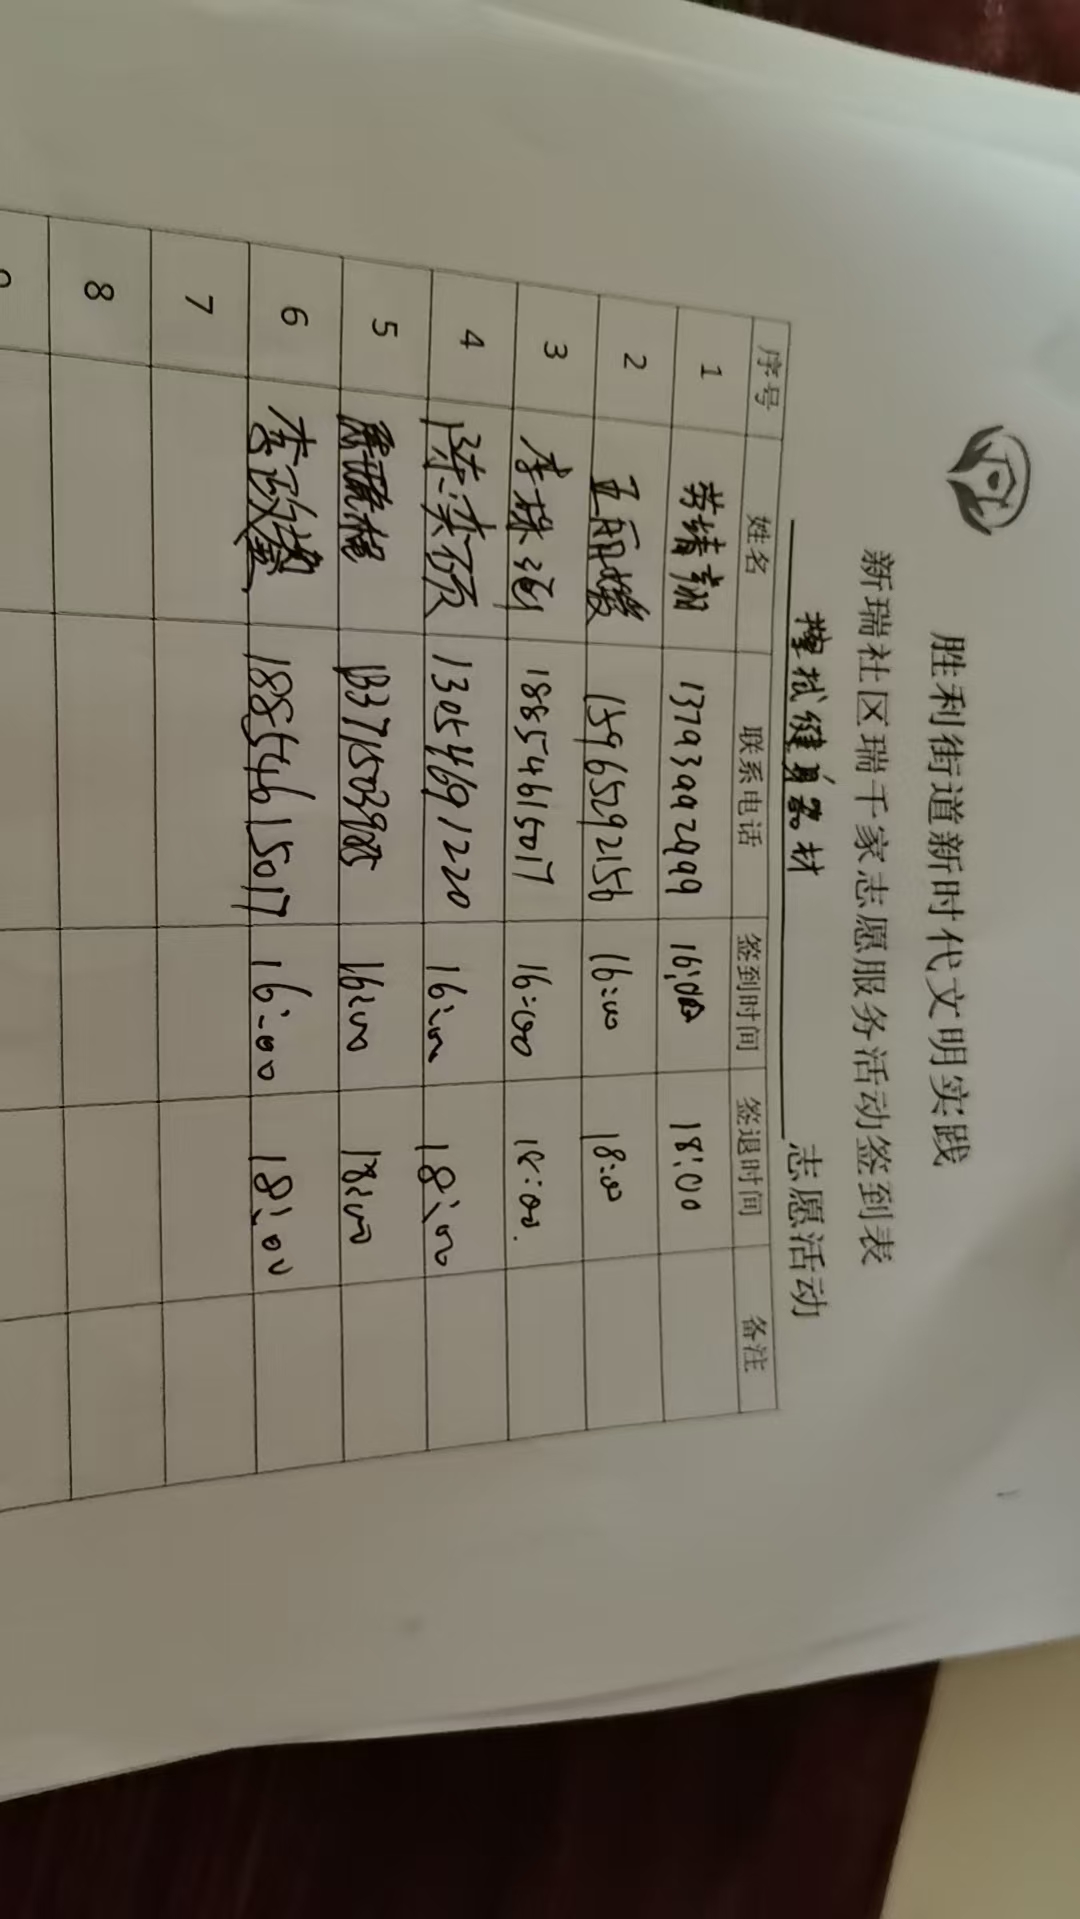 胜利街道新时代文明实践
新瑞社区瑞千家志愿服务活动签到表
擦拭健身器材 志愿活动
序号 姓名 联系电话 签到时间 签退时间 备注
1 13793992999 16:00 18:00
2 王丽媛 15965292156 16:00 18:00
3 李 18854615017 16:00 18:00
4 陈 13054691220 16:00 18:00
5 16:00 18:00
6 李 18854615017 16:00 18:00
7
8